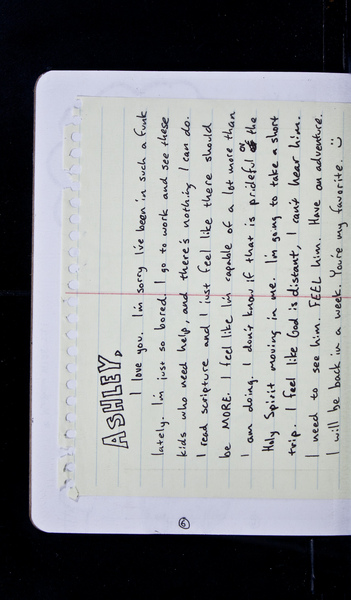 ASHLEY,
I love you. I'm sorry I've been in such a funk
lately. I'm just so bored. I go to work and see these
kids who need help, and there's nothing I can do.
I read scripture and I just feel like there should
be MORE. I feel like I'm capable of a lot more than
I am doing. I don't know if that is prideful or the
Holy Spirit moving in me. I'm going to take a short
trip. I feel like God is distant, I can't hear him.
I need to see him. FEEL him. Have an adventure.
I will be back in a week. You're my favorite. :)
6